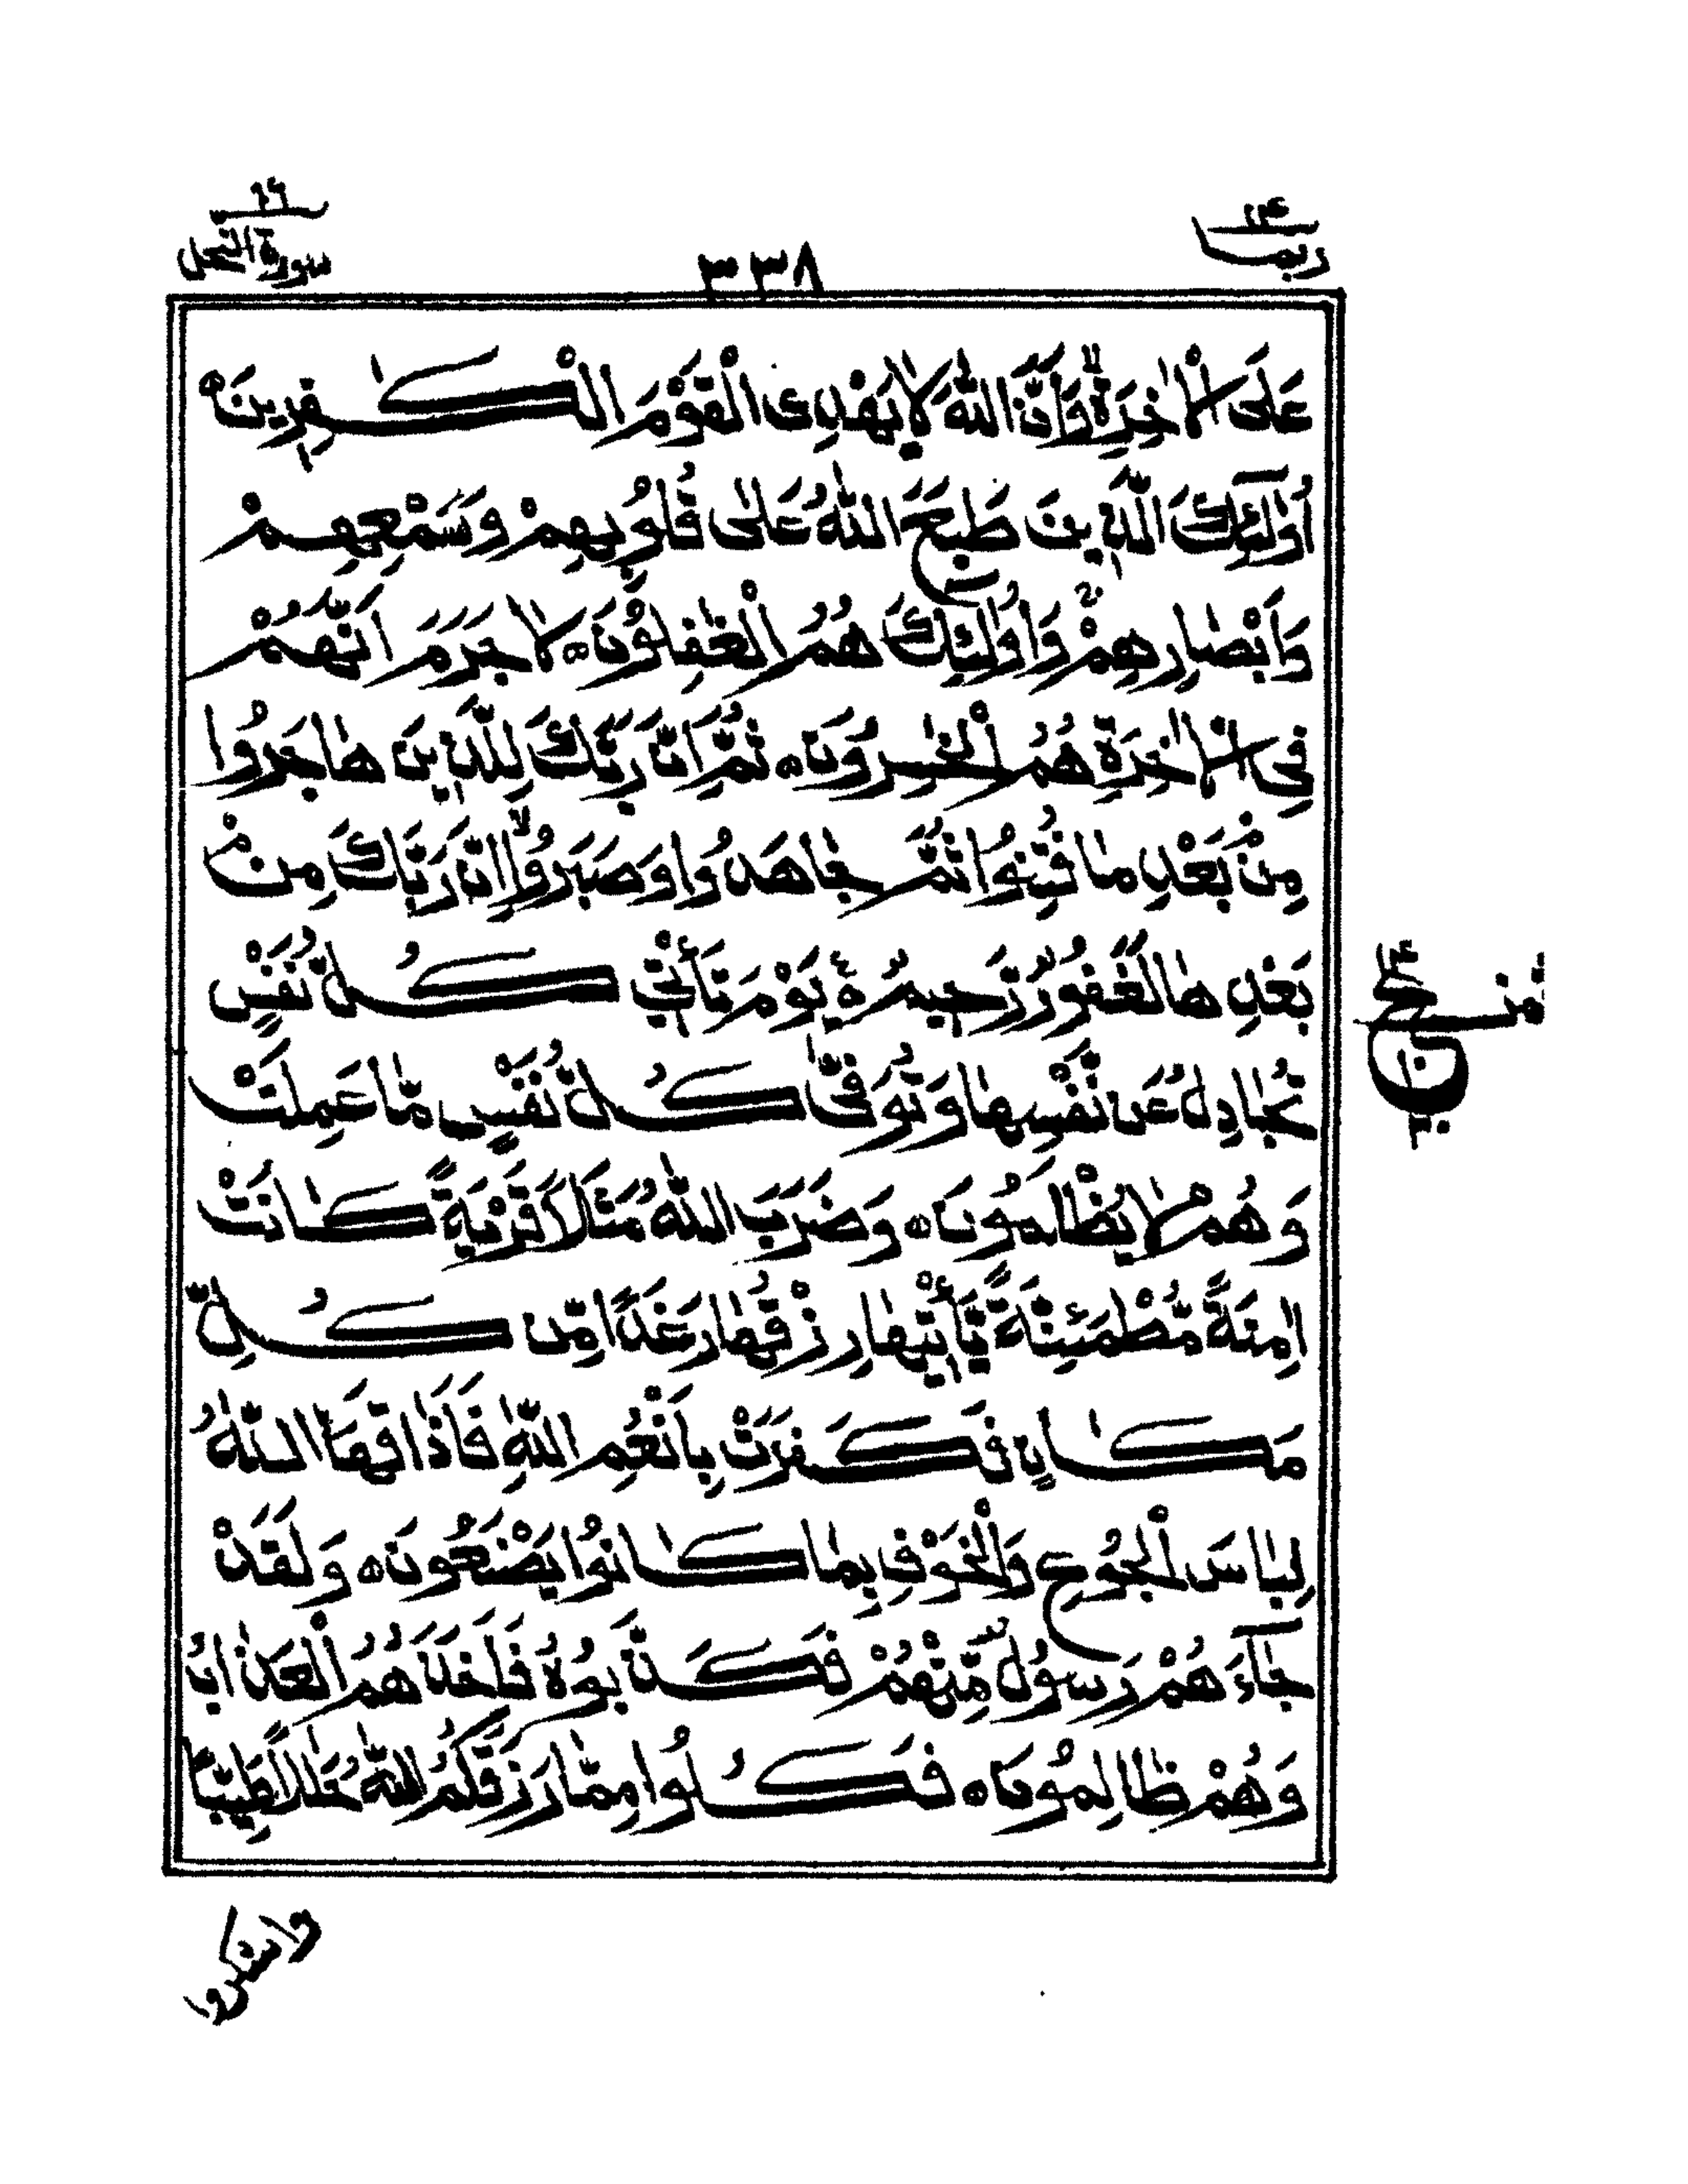 ربما ١٤
٣٣٨
سورة النحل ١٦
عَلَى الْاٰخِرَةِ ۙ وَاَنَّ اللّٰهَ لَا يَهْدِى الْقَوْمَ الْكٰفِرِينَ ○
اُولٰٓئِكَ الَّذِينَ طَبَعَ اللّٰهُ عَلٰى قُلُوبِهِمْ وَسَمْعِهِمْ
وَاَبْصَارِهِمْ ۚ وَاُولٰٓئِكَ هُمُ الْغٰفِلُونَ ○ لَا جَرَمَ اَنَّهُمْ
فِى الْاٰخِرَةِ هُمُ الْخٰسِرُونَ ○ ثُمَّ اِنَّ رَبَّكَ لِلَّذِينَ هَاجَرُوا
مِنْ بَعْدِ مَا فُتِنُوا ثُمَّ جَاهَدُوا وَصَبَرُوا ۙ اِنَّ رَبَّكَ مِنْ
بَعْدِهَا لَغَفُورٌ رَّحِيمٌ ○ يَوْمَ تَأْتِي كُلُّ نَفْسٍ
تُجَادِلُ عَنْ نَّفْسِهَا وَتُوَفّٰى كُلُّ نَفْسٍ مَّا عَمِلَتْ
وَهُمْ لَا يُظْلَمُونَ ○ وَضَرَبَ اللّٰهُ مَثَلًا قَرْيَةً كَانَتْ
اٰمِنَةً مُّطْمَئِنَّةً يَّأْتِيهَا رِزْقُهَا رَغَدًا مِّنْ كُلِّ
مَكَانٍ فَكَفَرَتْ بِاَنْعُمِ اللّٰهِ فَاَذَاقَهَا اللّٰهُ
لِبَاسَ الْجُوعِ وَالْخَوْفِ بِمَا كَانُوا يَصْنَعُونَ ○ وَلَقَدْ
جَآءَهُمْ رَسُولٌ مِّنْهُمْ فَكَذَّبُوهُ فَاَخَذَهُمُ الْعَذَابُ
وَهُمْ ظَالِمُونَ ○ فَكُلُوا مِمَّا رَزَقَكُمُ اللّٰهُ حَلَالًا طَيِّبًا
واشكروا